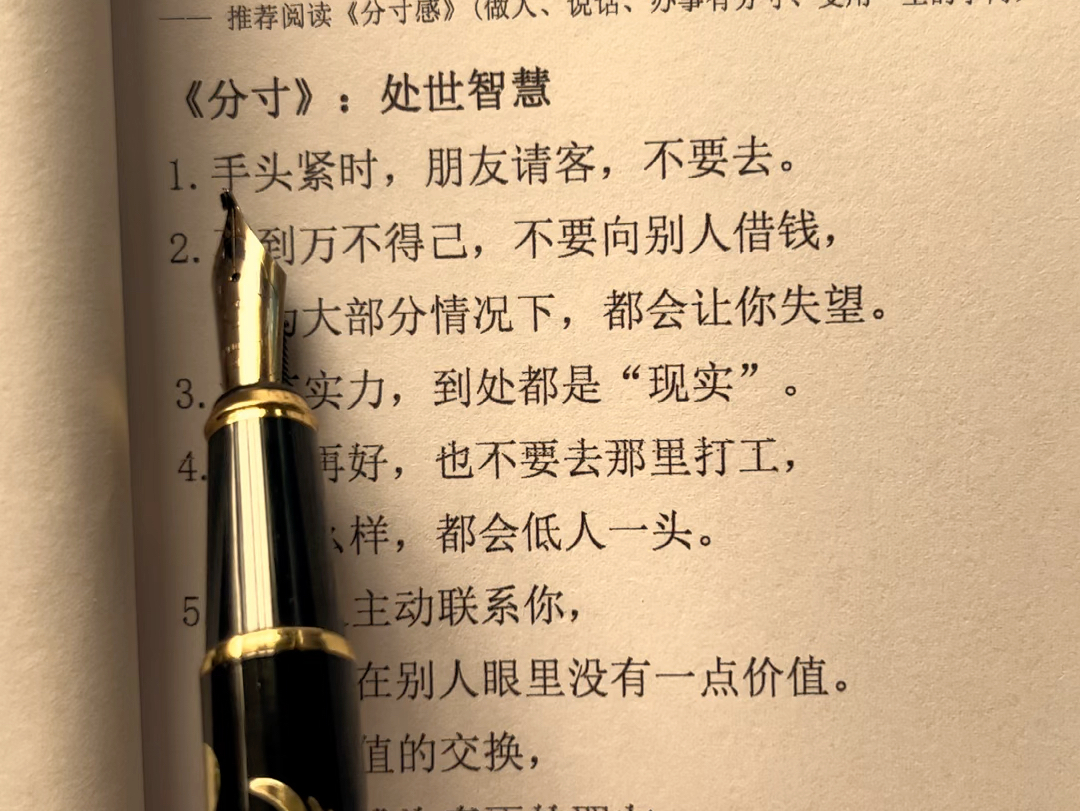 —— 推荐阅读《分寸感》（做人、说话、办事有分寸、受用一生的
《分寸》：处世智慧
1. 手头紧时，朋友请客，不要去。
2. 到万不得己，不要向别人借钱，
大部分情况下，都会让你失望。
3. 实力，到处都是“现实”。
4. 再好，也不要去那里打工，
样，都会低人一头。
5 主动联系你，
在别人眼里没有一点价值。
值的交换，